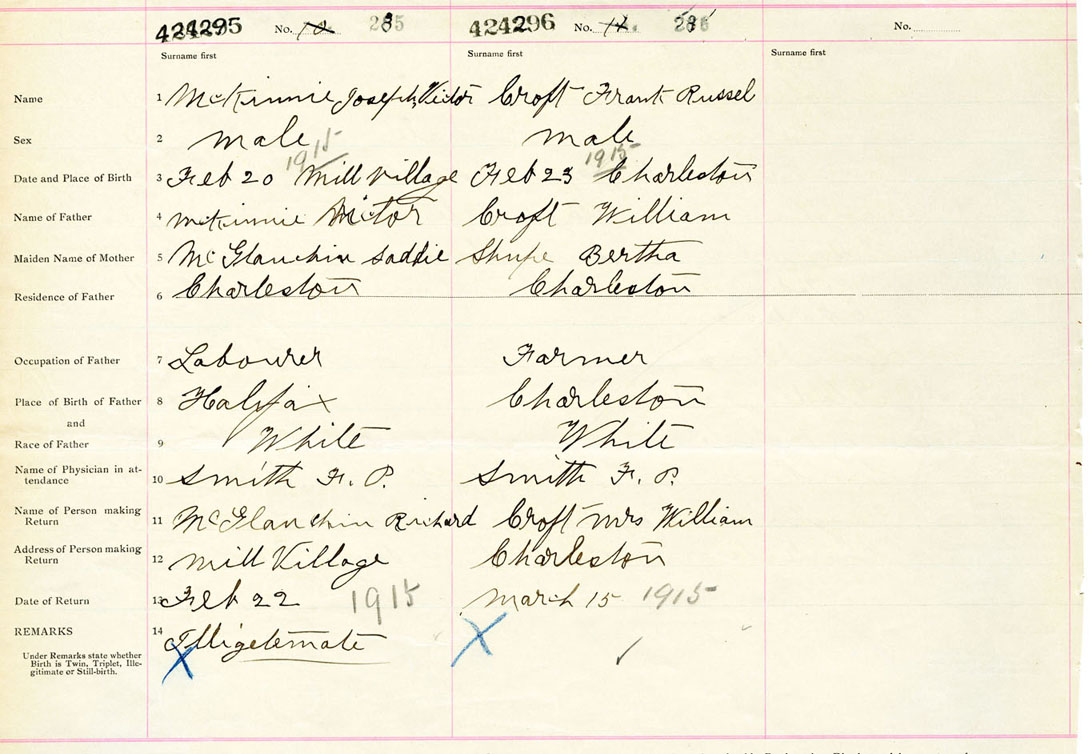 424295 No. 12. 285 424296 No. 14. 286 No.
Surname first Surname first Surname first
Name 1 McKinnie Joseph Victor Croft Frank Russel
Sex 2 male male
1915 1915
Date and Place of Birth 3 Feb 20 Mill Village Feb 23 Charleston
Name of Father 4 McKinnie Victor Croft William
Maiden Name of Mother 5 McGlauchin Saddie Shupe Bertha
Residence of Father 6 Charleston Charleston
Occupation of Father 7 Labourer Farmer
Place of Birth of Father 8 Halifax Charleston
and
Race of Father 9 White White
Name of Physician in at-
tendance 10 Smith F. P. Smith F. P.
Name of Person making
Return 11 McGlauchin Richard Croft Mrs William
Address of Person making
Return 12 Mill Village Charleston
Date of Return 13 Feb 22 1915 March 15 1915
REMARKS 14 Illigetemate
Under Remarks state whether
Birth is Twin, Triplet, Ille-
gitimate or Still-birth.